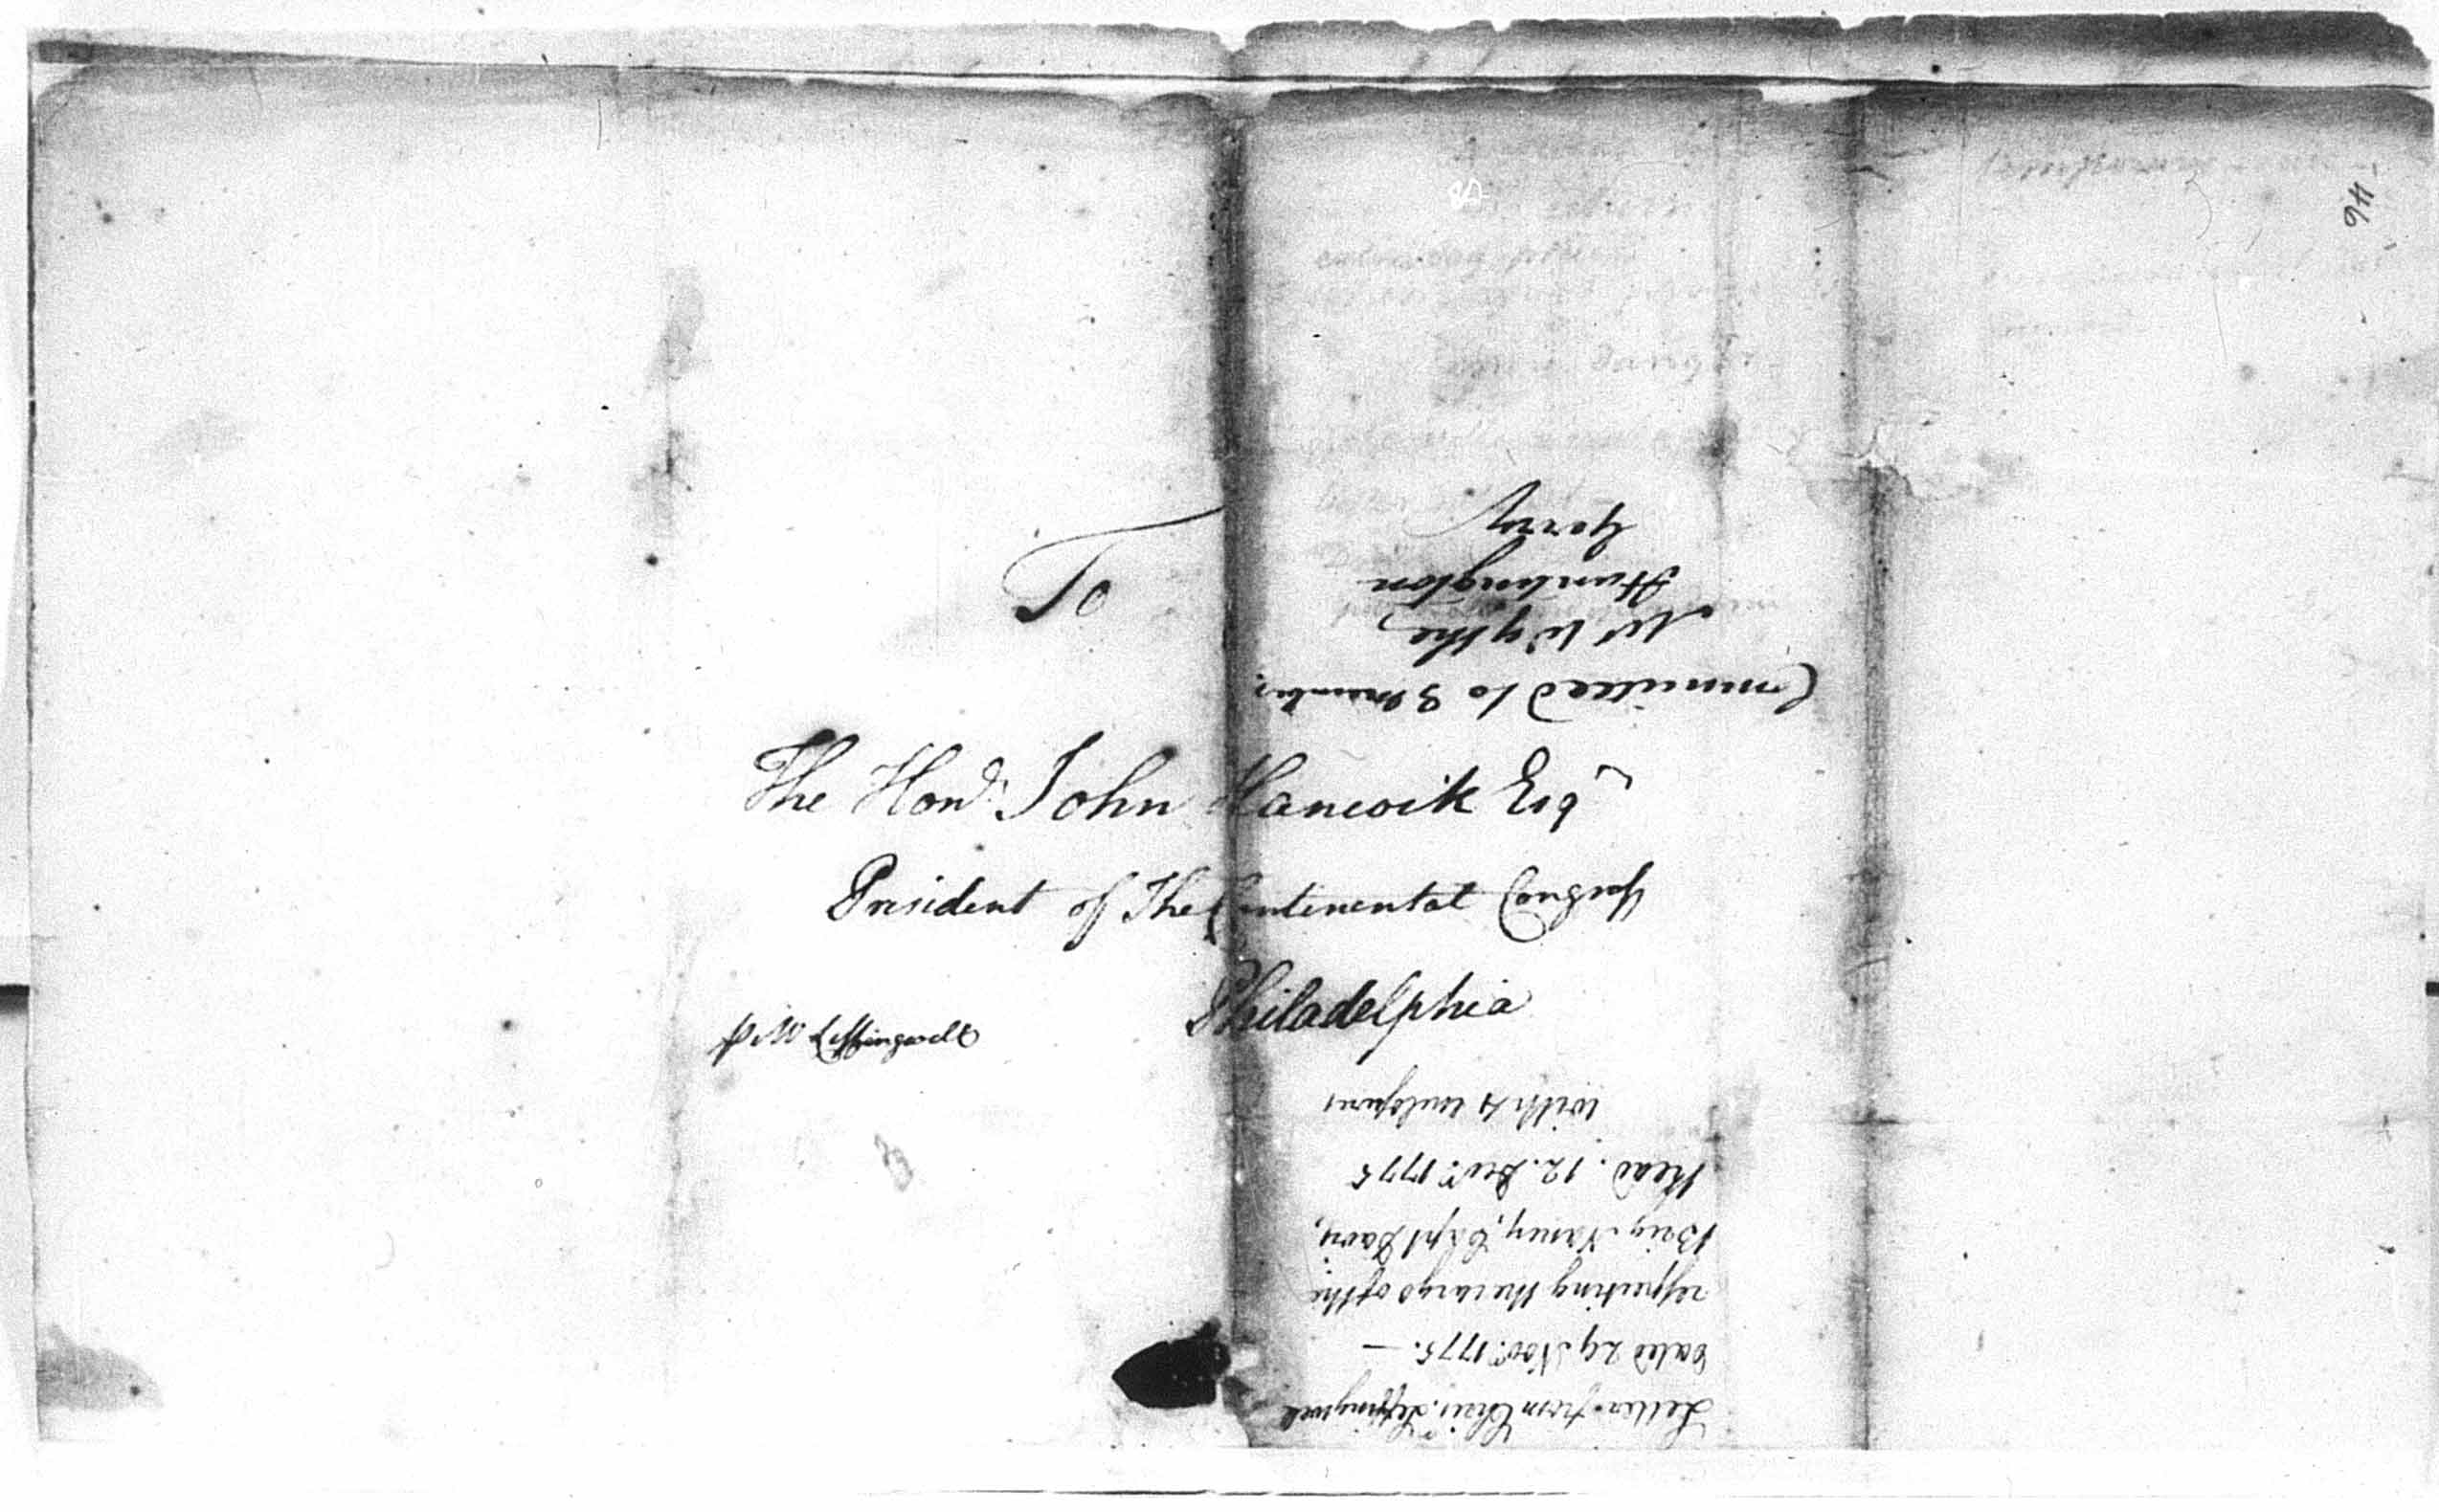 To
The Hon.d John Hancock Esqr
President of The Continental Congress
Philadelphia
p Mr Leffingwell
Letter from Chrisr. Leffingwel
dated 29 Novr. 1775. —
respecting the cargo of the
Brig Nancy, Capt Davis,
Read. 12. Decr. 1775
with 4 inclosures
Committed to 3 members.
Mr Wythe
Huntington
Gerry
146